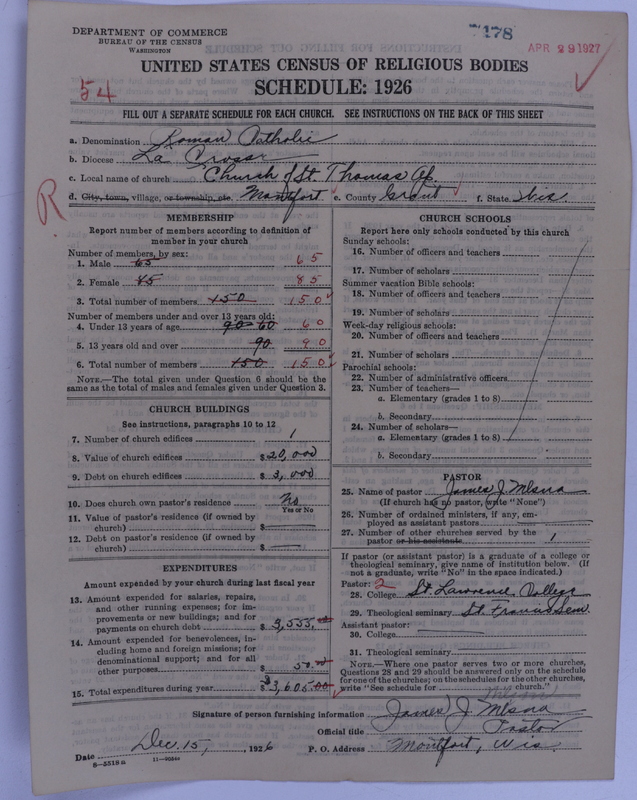 DEPARTMENT OF COMMERCE
BUREAU OF THE CENSUS
WASHINGTON
7178
APR 29 1927
UNITED STATES CENSUS OF RELIGIOUS BODIES
54
SCHEDULE: 1926
FILL OUT A SEPARATE SCHEDULE FOR EACH CHURCH. SEE INSTRUCTIONS ON THE BACK OF THIS SHEET
a. Denomination Roman Catholic
b. Diocese La Crosse
c. Local name of church Church of St. Thomas Ap.
R
d. City, town, village, or township, etc. Montfort e. County Grant f. State Wis.
MEMBERSHIP
Report number of members according to definition of member in your church
Number of members, by sex:
1. Male 65 65
2. Female 85 85
3. Total number of members 150 150
Number of members under and over 13 years old:
4. Under 13 years of age 90 60 60
5. 13 years old and over 90 90
6. Total number of members 150 150
NOTE.—The total given under Question 6 should be the
same as the total of males and females given under Question 3.
CHURCH BUILDINGS
See instructions, paragraphs 10 to 12
7. Number of church edifices 1
8. Value of church edifices $20,000
9. Debt on church edifices $3,000
10. Does church own pastor's residence No
Yes or No
11. Value of pastor's residence (if owned by
church) $
12. Debt on pastor's residence (if owned by
church) $
EXPENDITURES
Amount expended by your church during last fiscal year
13. Amount expended for salaries, repairs,
and other running expenses; for im-
provements or new buildings; and for
payments on church debt $3,555.00
14. Amount expended for benevolences, in-
cluding home and foreign missions; for
denominational support; and for all
other purposes $50.00
15. Total expenditures during year $3,605.00
CHURCH SCHOOLS
Report here only schools conducted by this church
Sunday schools:
16. Number of officers and teachers
17. Number of scholars
Summer vacation Bible schools:
18. Number of officers and teachers
19. Number of scholars
Week-day religious schools:
20. Number of officers and teachers
21. Number of scholars
Parochial schools:
22. Number of administrative officers
23. Number of teachers—
a. Elementary (grades 1 to 8)
b. Secondary
24. Number of scholars—
a. Elementary (grades 1 to 8)
b. Secondary
PASTOR
25. Name of pastor James J. Mlsna
(If church has no pastor, write "None")
26. Number of ordained ministers, if any, em-
ployed as assistant pastors
27. Number of other churches served by the
pastor or his assistants 1
If pastor (or assistant pastor) is a graduate of a college or
theological seminary, give name of institution below. (If
not a graduate, write "No" in the space indicated.)
Pastor: 2
28. College St. Lawrence College
29. Theological seminary St. Francis Sem.
Assistant pastor:
30. College
31. Theological seminary
NOTE.—Where one pastor serves two or more churches,
Questions 28 and 29 should be answered only on the schedule
for one of the churches; on the schedules for the other churches,
write "See schedule for church."
Mlsna
Signature of person furnishing information James J. Mlsna
Official title Pastor
Date Dec. 15, 1926 P. O. Address Montfort, Wis
8—5518a